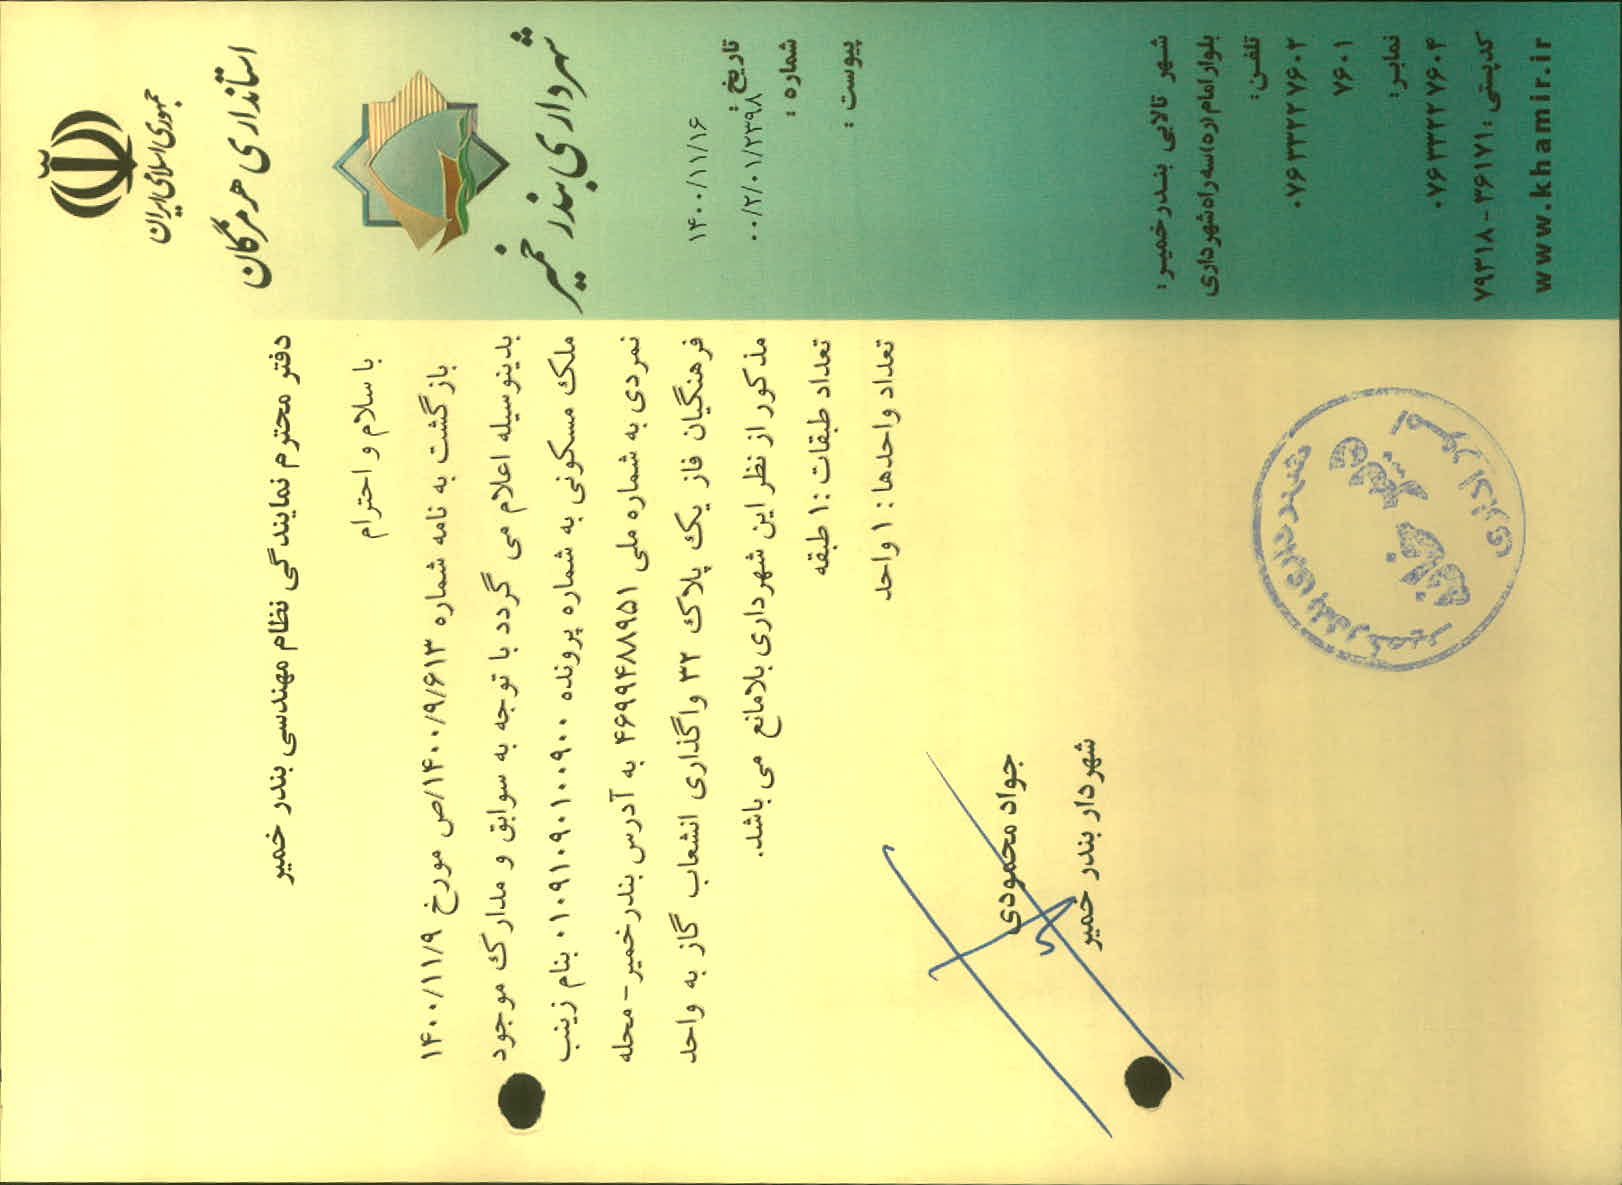 جمهوری اسلامی ایران
استانداری هرمزگان
شهرداری بندر خمیر
۱۴۰۰/۱۱/۱۶
تاریخ :
۰۰/۲/۰۱/۲۳۹۸
شماره :
پیوست :
دفتر محترم نمایندگی نظام مهندسی بندر خمیر
با سلام و احترام
بازگشت به نامه شماره ۱۴۰۰/۹/۶۱۳/ص مورخ ۱۴۰۰/۱۱/۹
بدینوسیله اعلام می گردد با توجه به سوابق و مدارک موجود
ملک مسکونی به شماره پرونده ۰۱۰۹۱۰۹۰۱۰۰۹۰۰ بنام زینب
نمردی به شماره ملی ۴۶۹۹۴۸۸۹۵۱ به آدرس بندرخمیر- محله
فرهنگیان فاز یک پلاک ۳۲ واگذاری انشعاب گاز به واحد
مذکور از نظر این شهرداری بلامانع می باشد.
تعداد طبقات :۱ طبقه
تعداد واحدها : ۱ واحد
جواد محمودی
شهردار بندر خمیر
شهرداری بندر خمیر
امور اداری
شهر تالابی بندرخمیر:
بلوار امام(ره)سه راه شهرداری
تلفن :
۰۷۶۳۳۲۲۷۶۰۲
۷۶۰۱
نمابر:
۰۷۶۳۳۲۲۷۶۰۴
کدپستی : ۳۶۱۷۱-۷۹۳۱۸
www.khamir.ir